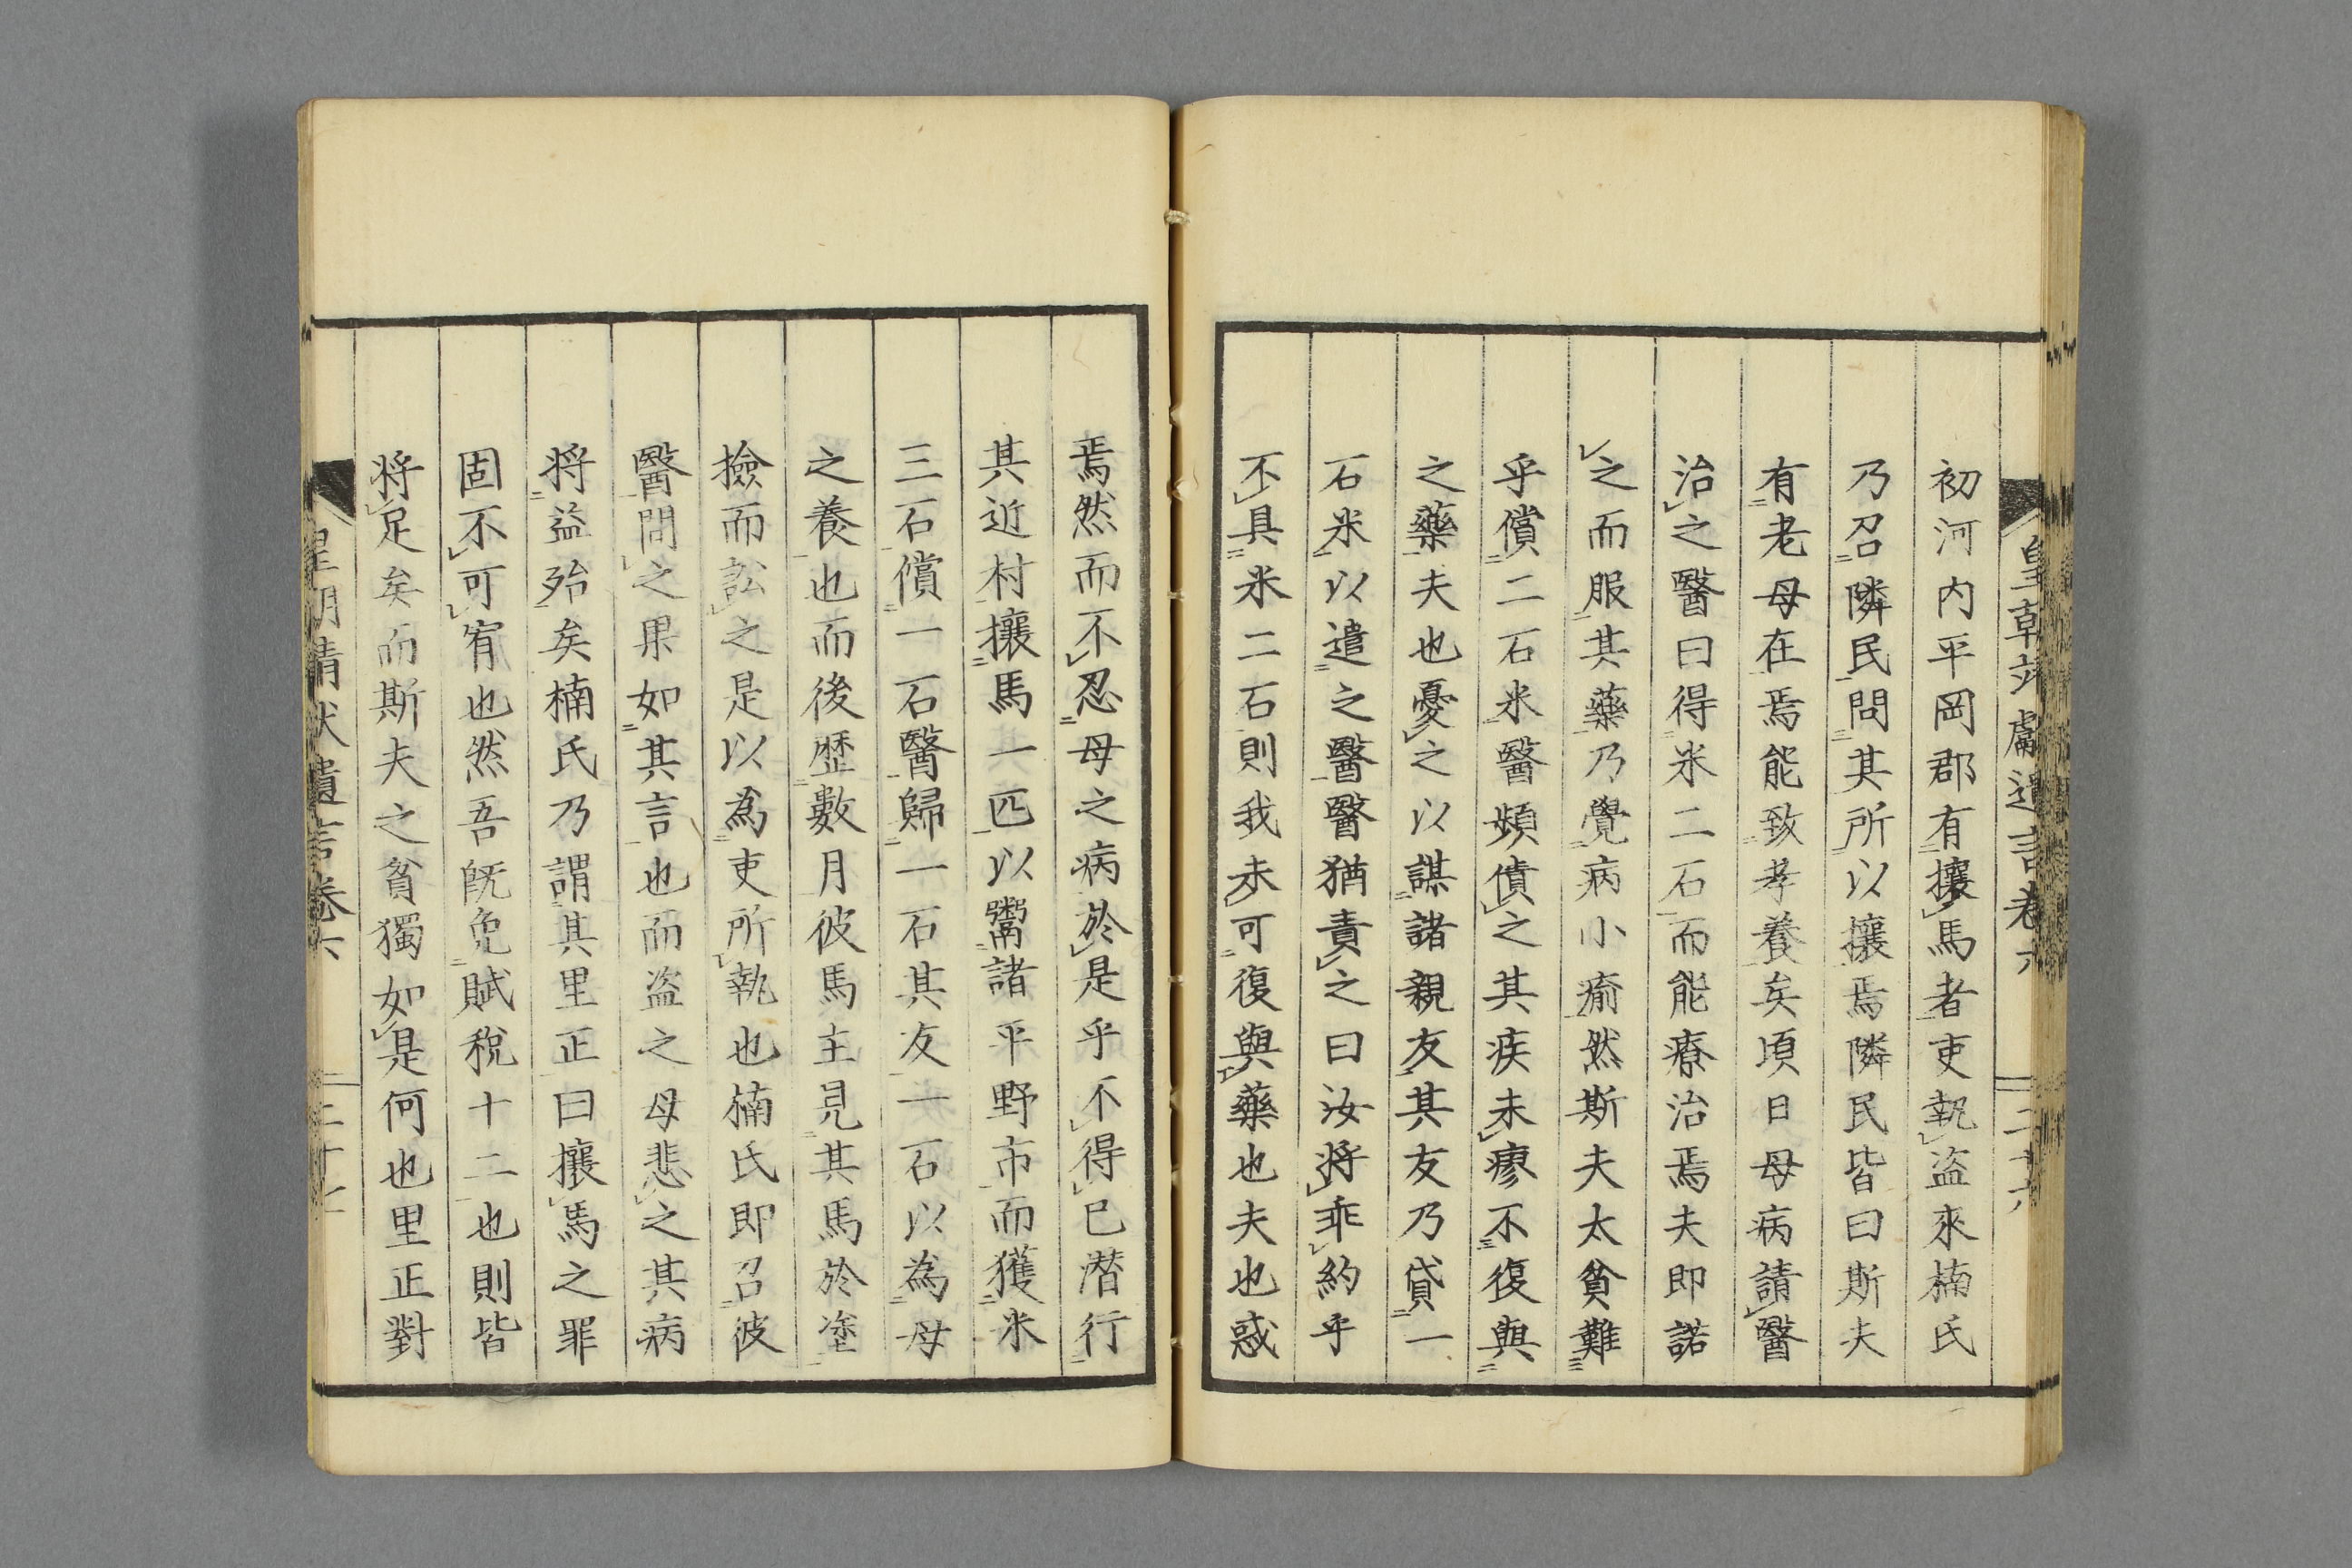 初河内平岡郡有攘馬者吏執盜來楠氏
乃召隣民問其所以攘焉隣民皆曰斯夫
有老母在焉能致孝養矣頃日母病請醫
治之醫曰得米二石而能療治焉夫即諾
之而服其藥乃覺病小瘉然斯夫太貧難
乎償二石米醫頻債之其疾未瘳不復與
之藥夫也憂之以謀諸親友其友乃貸一
石米以遣之醫醫猶責之曰汝將乖約乎
不具米二石則我未可復與藥也夫也惑
焉然而不忍母之病於是乎不得已潜行
其近村攘馬一匹以鬻諸平野市而獲米
三石償一石醫歸一石其友一石以為母
之養也而後歷數月彼馬主見其馬於塗
撿而訟之是以為吏所執也楠氏即召彼
醫問之果如其言也而盜之母悲之其病
将益殆矣楠氏乃謂其里正曰攘馬之罪
固不可宥也然吾既免賦稅十二也則皆
将足矣而斯夫之貧獨如是何也里正對
遺言卷六